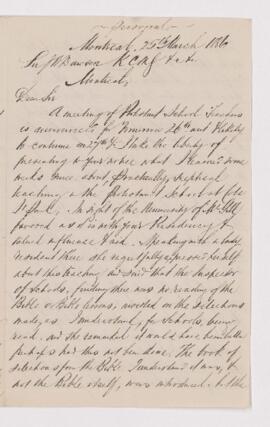 Personal
Montreal, 25th March 1886
Sir J W Dawson K C M G &c &c
Montreal,
Dear Sir
A meeting of Protestant School Teachers
is announced for tomorrow 26th and likely
to continue on 27th I take the liberty of
presenting to your notice what I learned some
weeks since about "Practically, sceptical
teaching" in the Protestant School at Cote
St Paul. In sight of the University of McGill
favored as it is with your Presidency &
valued influence I said. Speaking with a lady
resident there she regretfully expressed herself
about this teaching, and said that the Inspector
of Schools, finding there was no reading of the
Bible or Bible lessons, insisted on the selections
made, as I understand, for Schools, being
read, and she remarked it would have been better
perhaps had this not been done. The book of
selections from the Bible I understand it was, &
not the Bible itself, was introduced. to the